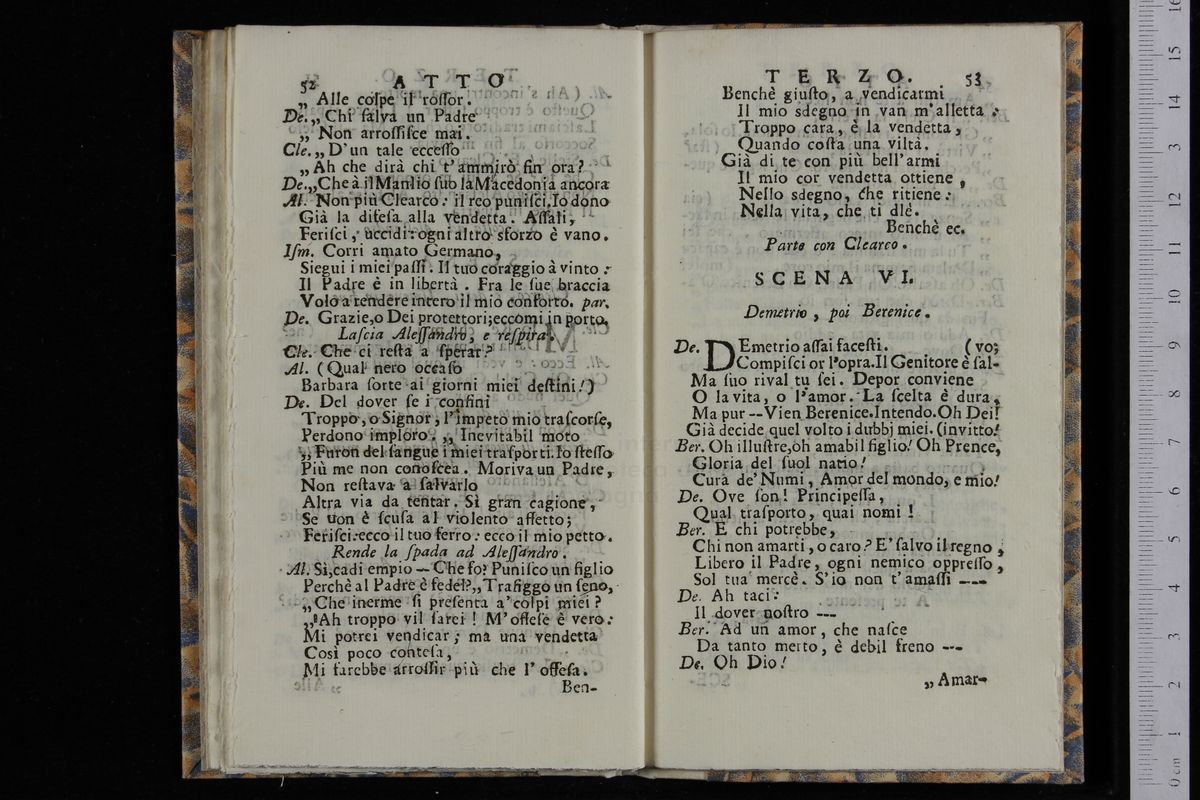 52 ATTO
„ Alle colpe il roſſor.
De. „ Chi ſalva un Padre
„ Non arroſſiſce mai.
Cle. „ D'un tale ecceſſo
„ Ah che dirà chi t'ammirò fin ora?
De. „ Che à il Manlio ſuo la Macedonia ancora
Al. Non più Clearco: il reo puniſci. Io dono
Già la difeſa alla vendetta. Aſſali,
Feriſci, uccidi: ogni altro sforzo è vano.
Iſm. Corri amato Germano,
Siegui i miei paſſi. Il tuo coraggio à vinto:
Il Padre è in libertà. Fra le ſue braccia
Volo a rendere intero il mio conforto. par.
De. Grazie, o Dei protettori; eccomi in porto.
Laſcia Aleſſandro, e reſpira.
Cle. Che ci reſta a ſperar?
Al. (Qual nero occaſo
Barbara ſorte ai giorni miei deſtini!)
De. Del dover ſe i confini
Troppo, o Signor, l'impeto mio traſcorſe,
Perdono imploro. „ Inevitabil moto
„ Furon del ſangue i miei traſporti. Io ſteſſo
Più me non conoſcea. Moriva un Padre,
Non reſtava a ſalvarlo
Altra via da tentar. Sì gran cagione,
Se uon è ſcuſa al violento affetto;
Feriſci: ecco il tuo ferro: ecco il mio petto.
Rende la ſpada ad Aleſſandro.
Al. Sì, cadi empio — Che fo? Puniſco un figlio
Perchè al Padre è fedel? „ Trafiggo un ſeno,
„ Che inerme ſi preſenta a' colpi miei?
„ Ah troppo vil ſarei! M'offeſe è vero:
Mi potrei vendicar; ma una vendetta
Così poco conteſa,
Mi farebbe arroſſir più che l'offeſa.
Ben-
TERZO. 53
Benchè giuſto, a vendicarmi
Il mio sdegno in van m'alletta:
Troppo cara, è la vendetta,
Quando coſta una viltà.
Già di te con più bell'armi
Il mio cor vendetta ottiene,
Nello sdegno, che ritiene:
Nella vita, che ti diè.
Benchè ec.
Parte con Clearco.
SCENA VI.
Demetrio, poi Berenice.
De. DEmetrio aſſai faceſti. (vo;
Compiſci or l'opra. Il Genitore è ſal-
Ma ſuo rival tu ſei. Depor conviene
O la vita, o l'amor. La ſcelta è dura,
Ma pur -- Vien Berenice. Intendo. Oh Dei!
Già decide quel volto i dubbj miei. (invitto!
Ber. Oh illuſtre, oh amabil figlio! Oh Prence,
Gloria del ſuol natio!
Cura de' Numi, Amor del mondo, e mio!
De. Ove ſon! Principeſſa,
Qual traſporto, quai nomi!
Ber. E chi potrebbe,
Chi non amarti, o caro? E' ſalvo il regno,
Libero il Padre, ogni nemico oppreſſo,
Sol tua mercè. S'io non t'amaſſi ---
De. Ah taci:
Il dover noſtro ---
Ber. Ad un amor, che naſce
Da tanto merto, è debil freno ---
De. Oh Dio!
„ Amar-